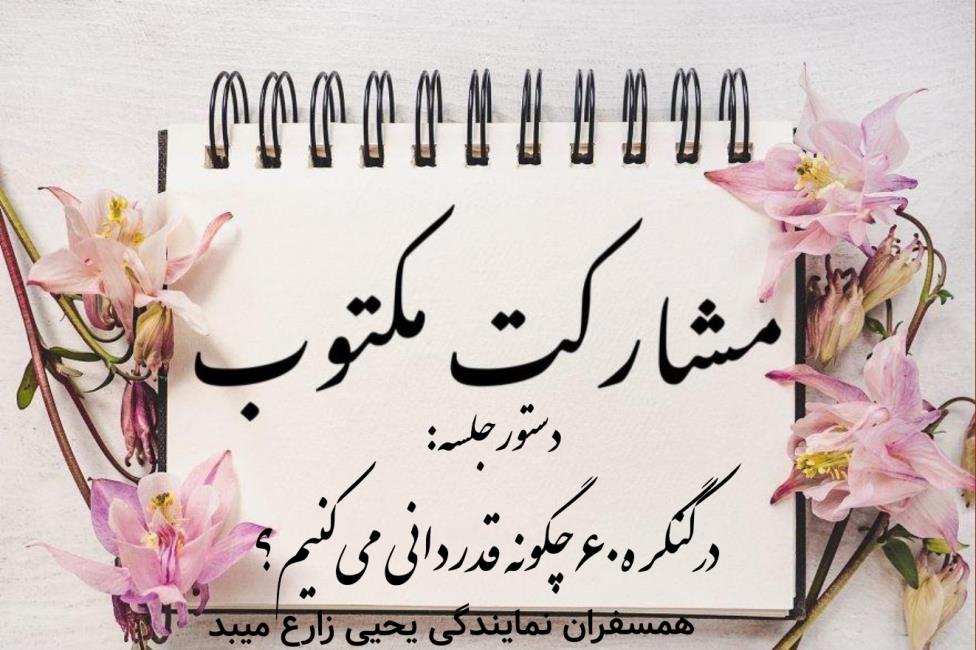 مشارکت مکتوب
دستور جلسه:
در کنگره ۶۰ چگونه قدردانی می کنیم ؟
همسفران نمایندگی یحیی زارع میبد